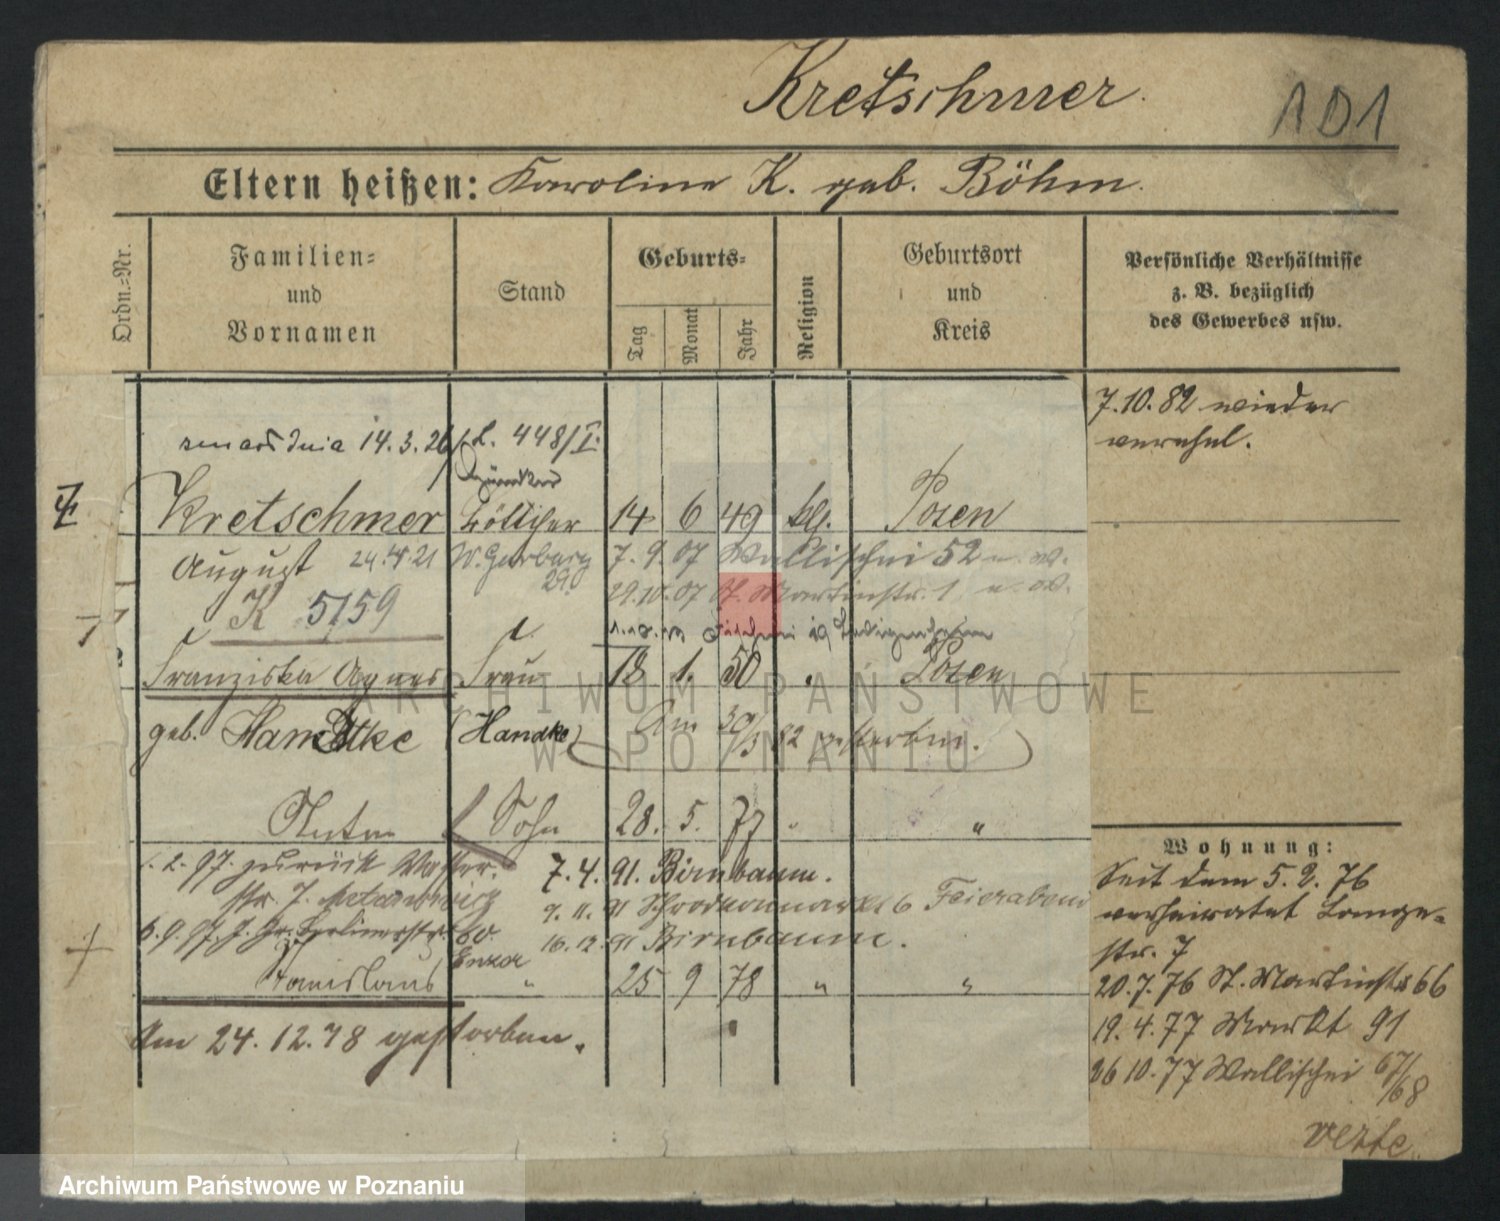 Kretschmer.
101
Eltern heißen: Karoline K. geb. Böhm.
Ordn.-Nr.
Familien-
und
Vornamen
Stand
Geburts-
Tag
Monat
Jahr
Religion
Geburtsort
und
Kreis
Persönliche Verhältnisse
z. B. bezüglich
des Gewerbes usw.
7.10.82 wieder
verehel.
zmarł dnia 14.3.26 448/I.
Kretschmer Böttcher 14 6 49 Posen
August 24.4.21 W. Garbary 29. 7.9.07 Wallischei 52
K 5159 29.10.07 St. Martinstr. 1
Franziska Agnes Frau 18 1. 50 " Posen
geb. Hamdtke (Handke) Am 30/3 82 gestorben.
Anton Sohn 28. 5. 77 " "
2.97. zurück Wasser- 7.4.91. Birnbaum.
str. 7. 9.11.91 6 Feierabend
6.9.97. Gr. Berlinerstr. 60. 16.12.91 Birnbaum.
Stanislaus " 25 9 78 " "
Am 24.12.78 gestorben.
Wohnung:
Seit dem 5.2.76
verheiratet Lange-
str. 7
20.7.76 St. Martinstr 66
19.4.77 Markt 91
26 10.77 Wallischei 67/68
verte.
ARCHIWUM PAŃSTWOWE
W POZNANIU
Archiwum Państwowe w Poznaniu